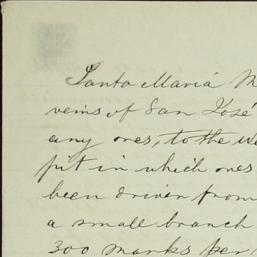 Santa Mariá M
veins of San José
any ores, to the We
put in which ones
been driven from
a small branch
300 marks per